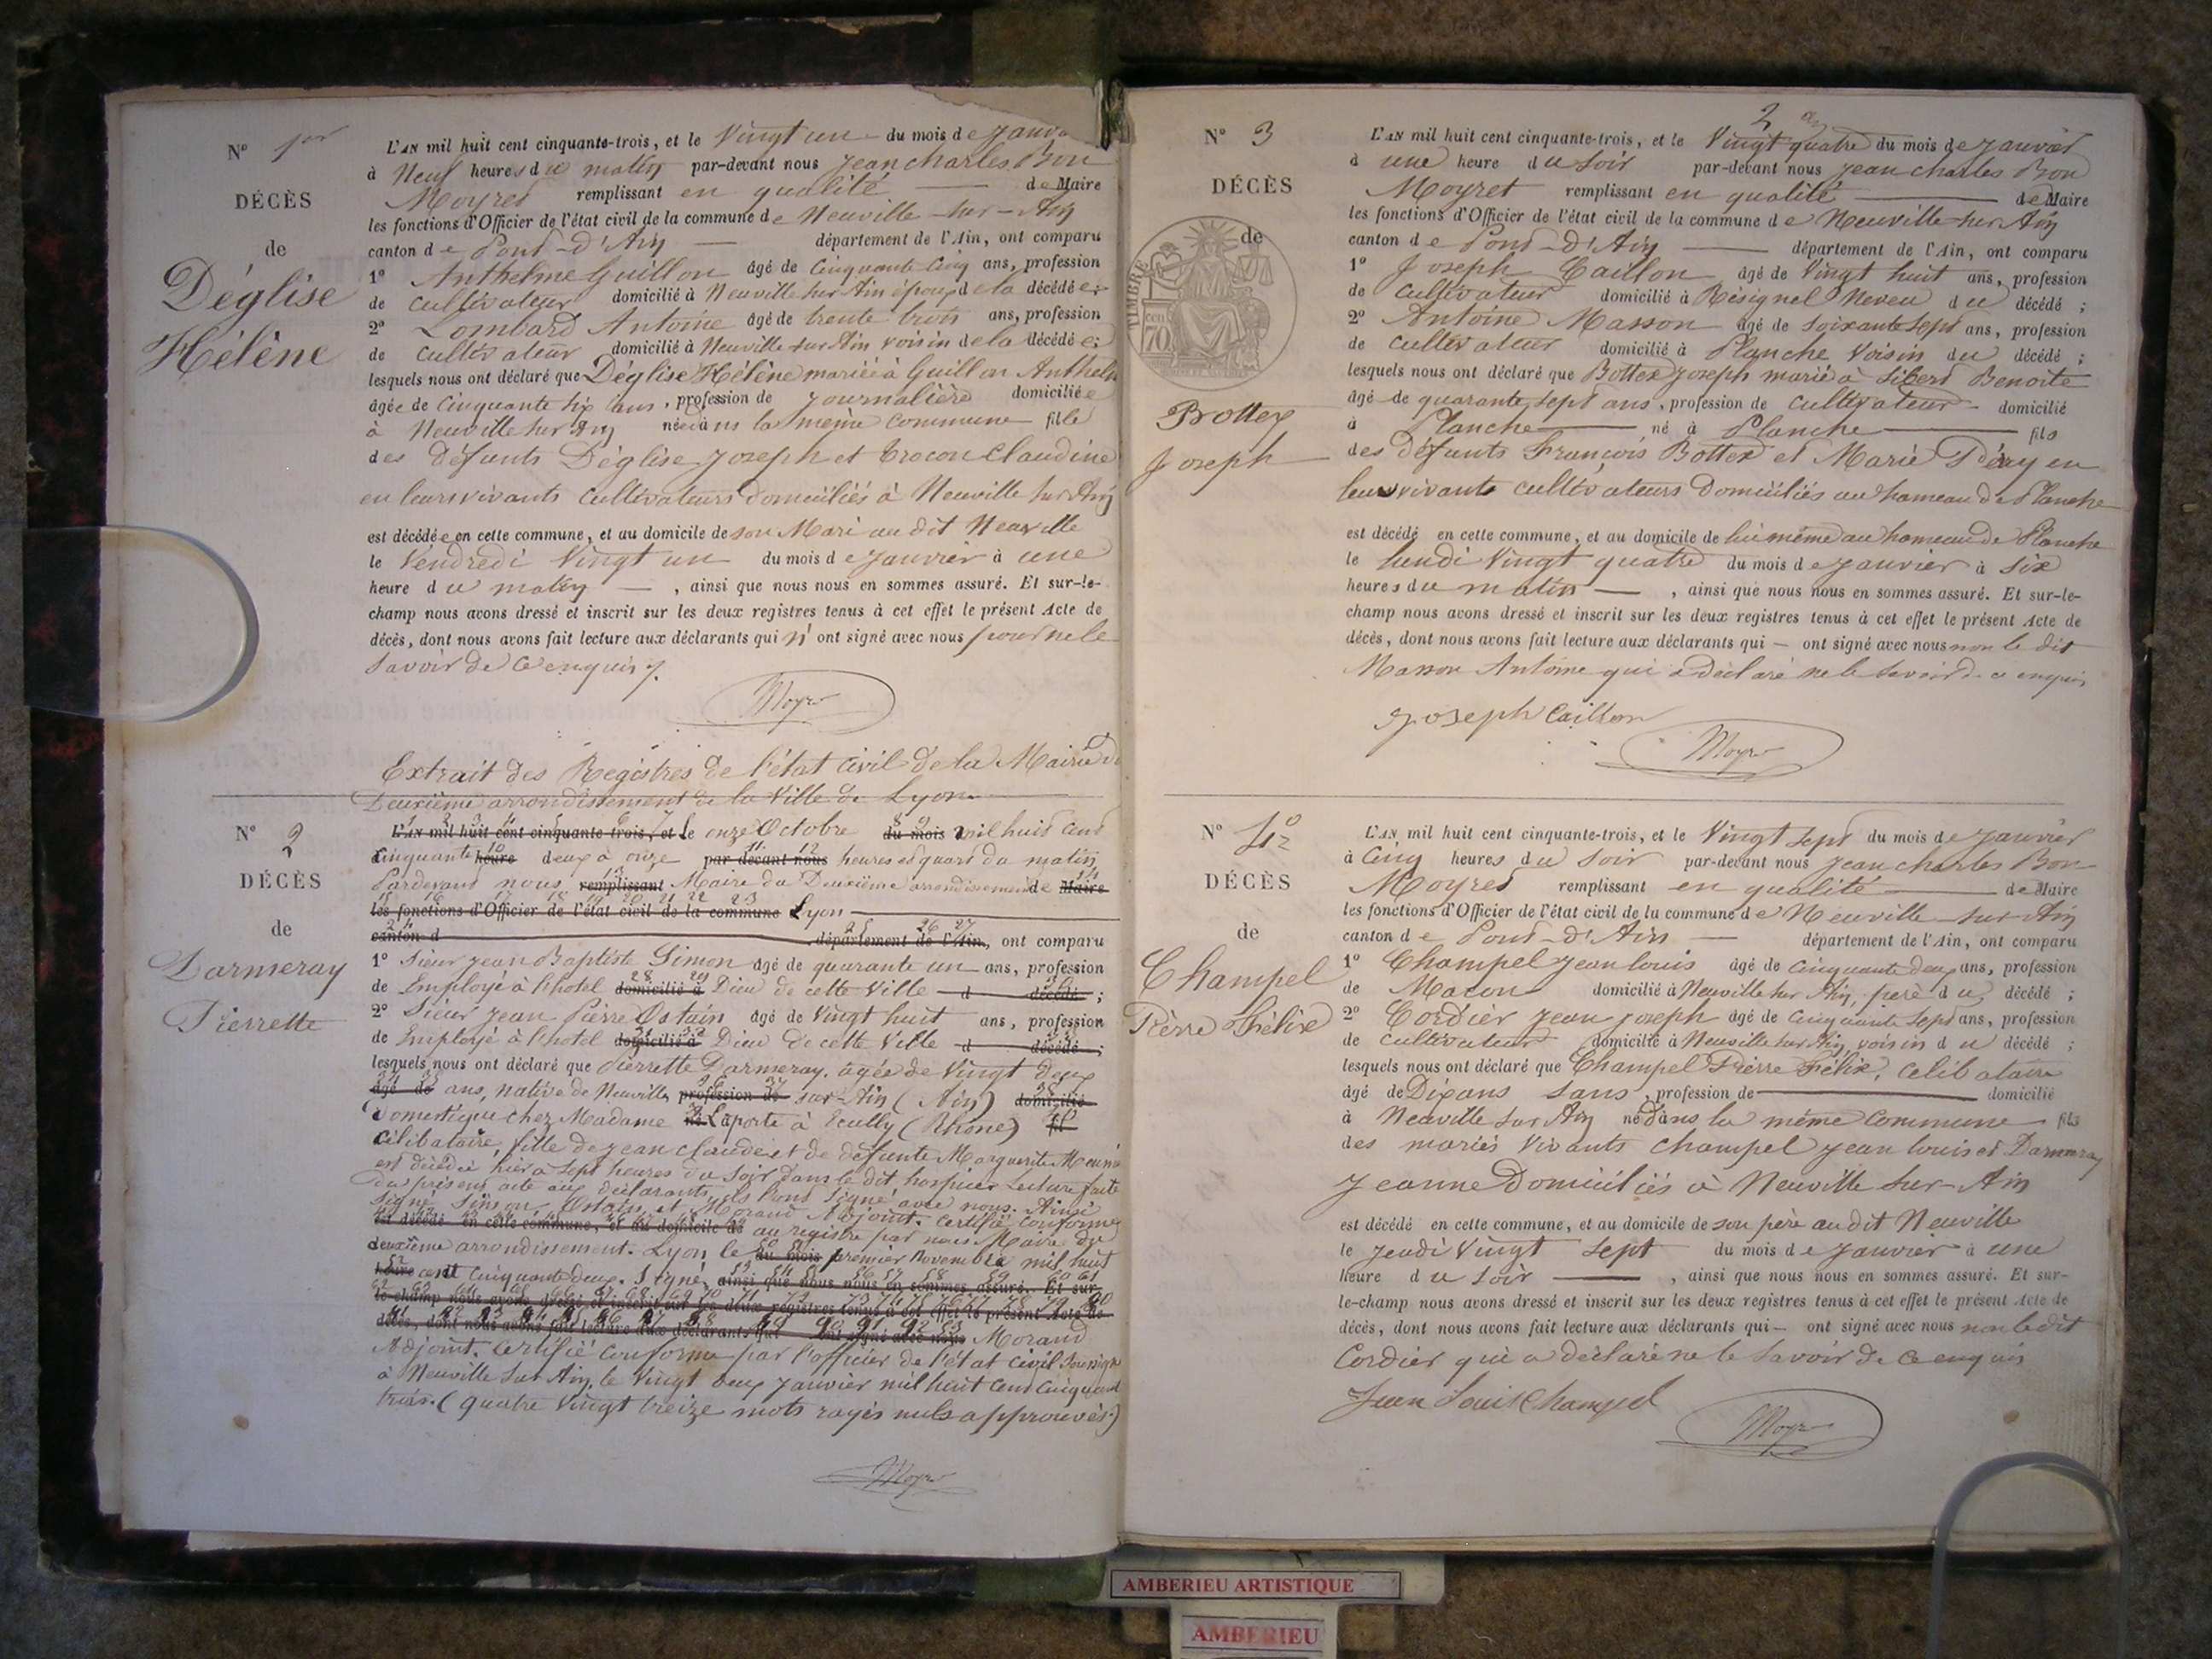 N° 1er
DÉCÈS
de
Déglise
Hélène
L'AN mil huit cent cinquante-trois, et le Vingt un du mois de Janv
à Neuf heures du matin par-devant nous Jean Charles Bon
Moyret remplissant en qualité de Maire
les fonctions d'Officier de l'état civil de la commune de Neuville-sur-Ain
canton de Pont-d'Ain département de l'Ain, ont comparu
1° Anthelme Guillon âgé de Cinquante Cinq ans, profession
de cultivateur domicilié à Neuville sur Ain époux de la décédée;
2° Lombard Antoine âgé de trente trois ans, profession
de cultivateur domicilié à Neuville sur Ain voisin de la décédée;
lesquels nous ont déclaré que Déglise Hélène mariée à Guillon Anthelm
âgée de Cinquante six ans, profession de journalière domiciliée
à Neuville sur Ain née dans la même commune fille
des défunts Déglise Joseph et Trocon Claudine
en leurs vivants cultivateurs domiciliés à Neuville sur Ain
est décédée en cette commune, et au domicile de son Mari au dit Neuville
le Vendredi Vingt un du mois de Janvier à une
heure du matin, ainsi que nous nous en sommes assuré. Et sur-le-
champ nous avons dressé et inscrit sur les deux registres tenus à cet effet le présent Acte de
décès, dont nous avons fait lecture aux déclarants qui n'ont signé avec nous pour ne le
savoir de ce enquis
Moyret
Extrait des Registres de l'état civil de la Mairie d
Deuxième arrondissement de la Ville de Lyon
N° 2
DÉCÈS
de
Darmeray
Pierrette
L'AN mil huit cent cinquante-trois, et le onze Octobre du mois mil huit cent
cinquante heure deux à onze par-devant nous heures et quart du matin
Pardevant nous remplissant Maire du Deuxième arrondissement de Maire
les fonctions d'Officier de l'état civil de la commune Lyon
canton d département de l'Ain, ont comparu
1° Sieur Jean Baptiste Simon âgé de quarante un ans, profession
de Employé à l'hotel domicilié à Dieu de cette Ville d décédé;
2° Sieur Jean Pierre Ostain âgé de Vingt huit ans, profession
de Employé à l'hotel domicilié à Dieu de cette Ville d décédé;
lesquels nous ont déclaré que Pierrette Darmeray, agée de Vingt deux
âgé de ans, native de Neuville profession de sur-Ain (Ain) domicilié
Domestique chez Madame né Laporte à Ecully (Rhône) fil
célibataire, fille de Jean Claude et de défunte Marguerite
est décédée hier à sept heures du soir dans le dit hospice. Lecture faite
du présent acte aux déclarants, ils l'ont signé avec nous. Ainsi
signé Simon, Ostain, et Morand Adjoint. Certifié conforme
est décédé en cette commune, et au domicile de au registre par nous Maire du
deuxième arrondissement. Lyon le du mois premier Novembre mil huit
heure cent cinquante deux. Signé, ainsi que nous nous en sommes assuré. Et sur-
le-champ nous avons dressé et inscrit sur les deux registres tenus à cet effet le présent Acte de
décès, dont nous avons fait lecture aux déclarants qui ont signé avec nous Morand
Adjoint. Certifié conforme par l'officier de l'état civil soussigné
à Neuville sur Ain, le Vingt deux Janvier mil huit cent cinquant
trois. (quatre Vingt treize mots rayés nuls approuvés.)
Moyret
2
N° 3
DÉCÈS
de
TIMBRE
cen
70
Bottex
Joseph
L'AN mil huit cent cinquante-trois, et le Vingt quatre du mois de Janvier
à une heure du soir par-devant nous Jean Charles Bon
Moyret remplissant en qualité de Maire
les fonctions d'Officier de l'état civil de la commune de Neuville-sur-Ain
canton de Pont-d'Ain département de l'Ain, ont comparu
1° Joseph Caillon âgé de Vingt huit ans, profession
de cultivateur domicilié à Résignel Neveu du décédé;
2° Antoine Masson âgé de soixante sept ans, profession
de cultivateur domicilié à Planche Voisin du décédé;
lesquels nous ont déclaré que Bottex Joseph marié à Sibert Benoite
âgé de quarante sept ans, profession de cultivateur domicilié
à Planche né à Planche fils
des défunts François Bottex et Marie Péray en
leurs vivants cultivateurs Domiciliés au hameau de Planche
est décédé en cette commune, et au domicile de lui même au hameau de Planche
le Lundi Vingt quatre du mois de Janvier à six
heures du matin, ainsi que nous nous en sommes assuré. Et sur-le-
champ nous avons dressé et inscrit sur les deux registres tenus à cet effet le présent Acte de
décès, dont nous avons fait lecture aux déclarants qui — ont signé avec nous non le dit
Masson Antoine qui a Déclaré ne le savoir de ce enquis
Joseph Caillon
Moyret
N° 4
DÉCÈS
de
Champel
Pièrre Félix
L'AN mil huit cent cinquante-trois, et le Vingt sept du mois de Janvier
à Cinq heures du soir par-devant nous Jean Charles Bon
Moyret remplissant en qualité de Maire
les fonctions d'Officier de l'état civil de la commune de Neuville-sur-Ain
canton de Pont-d'Ain département de l'Ain, ont comparu
1° Champel Jean Louis âgé de Cinquante deux ans, profession
de Maçon domicilié à Neuville sur Ain, père du décédé;
2° Cordier Jean Joseph âgé de Cinquante sept ans, profession
de cultivateur domicilié à Neuville sur Ain, voisin du décédé;
lesquels nous ont déclaré que Champel Pierre Félix, célibataire
âgé de Dix ans sans, profession de domicilié
à Neuville sur Ain né dans la même commune fils
des mariés Vivants Champel Jean Louis et Darmeray
Jeanne Domiciliés à Neuville sur Ain
est décédé en cette commune, et au domicile de son père au dit Neuville
le Jeudi Vingt sept du mois de Janvier à une
heure du soir, ainsi que nous nous en sommes assuré. Et sur-
le-champ nous avons dressé et inscrit sur les deux registres tenus à cet effet le présent Acte de
décès, dont nous avons fait lecture aux déclarants qui — ont signé avec nous non le dit
Cordier qui a déclaré ne le savoir de ce enquis
Jean Louis Champel
Moyret
AMBERIEU ARTISTIQUE
AMBERIEU